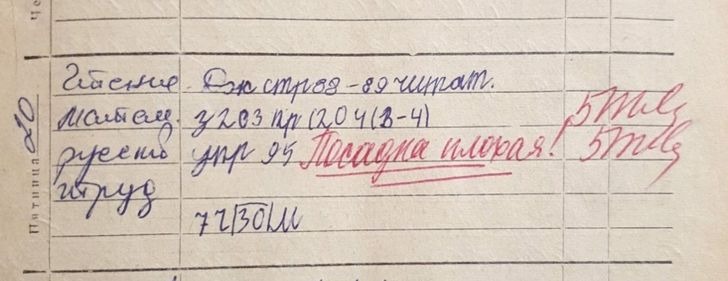 Пятница 20
Чтение стр 88-89 читат.
Матем. з 203 пр (204 (3-4) 5
русский упр 95 Посадка плохая! 5
труд
7ч 30 м